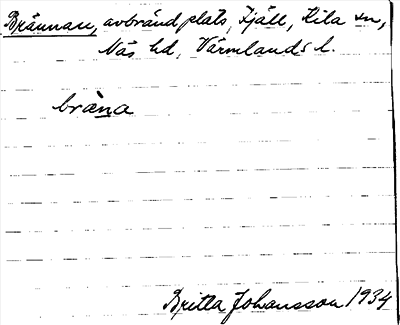 Brännan, avbränd plats, Fjäll, Kila sn,
Näs hd, Värmlands l.
bràna
Britta Johansson 1934